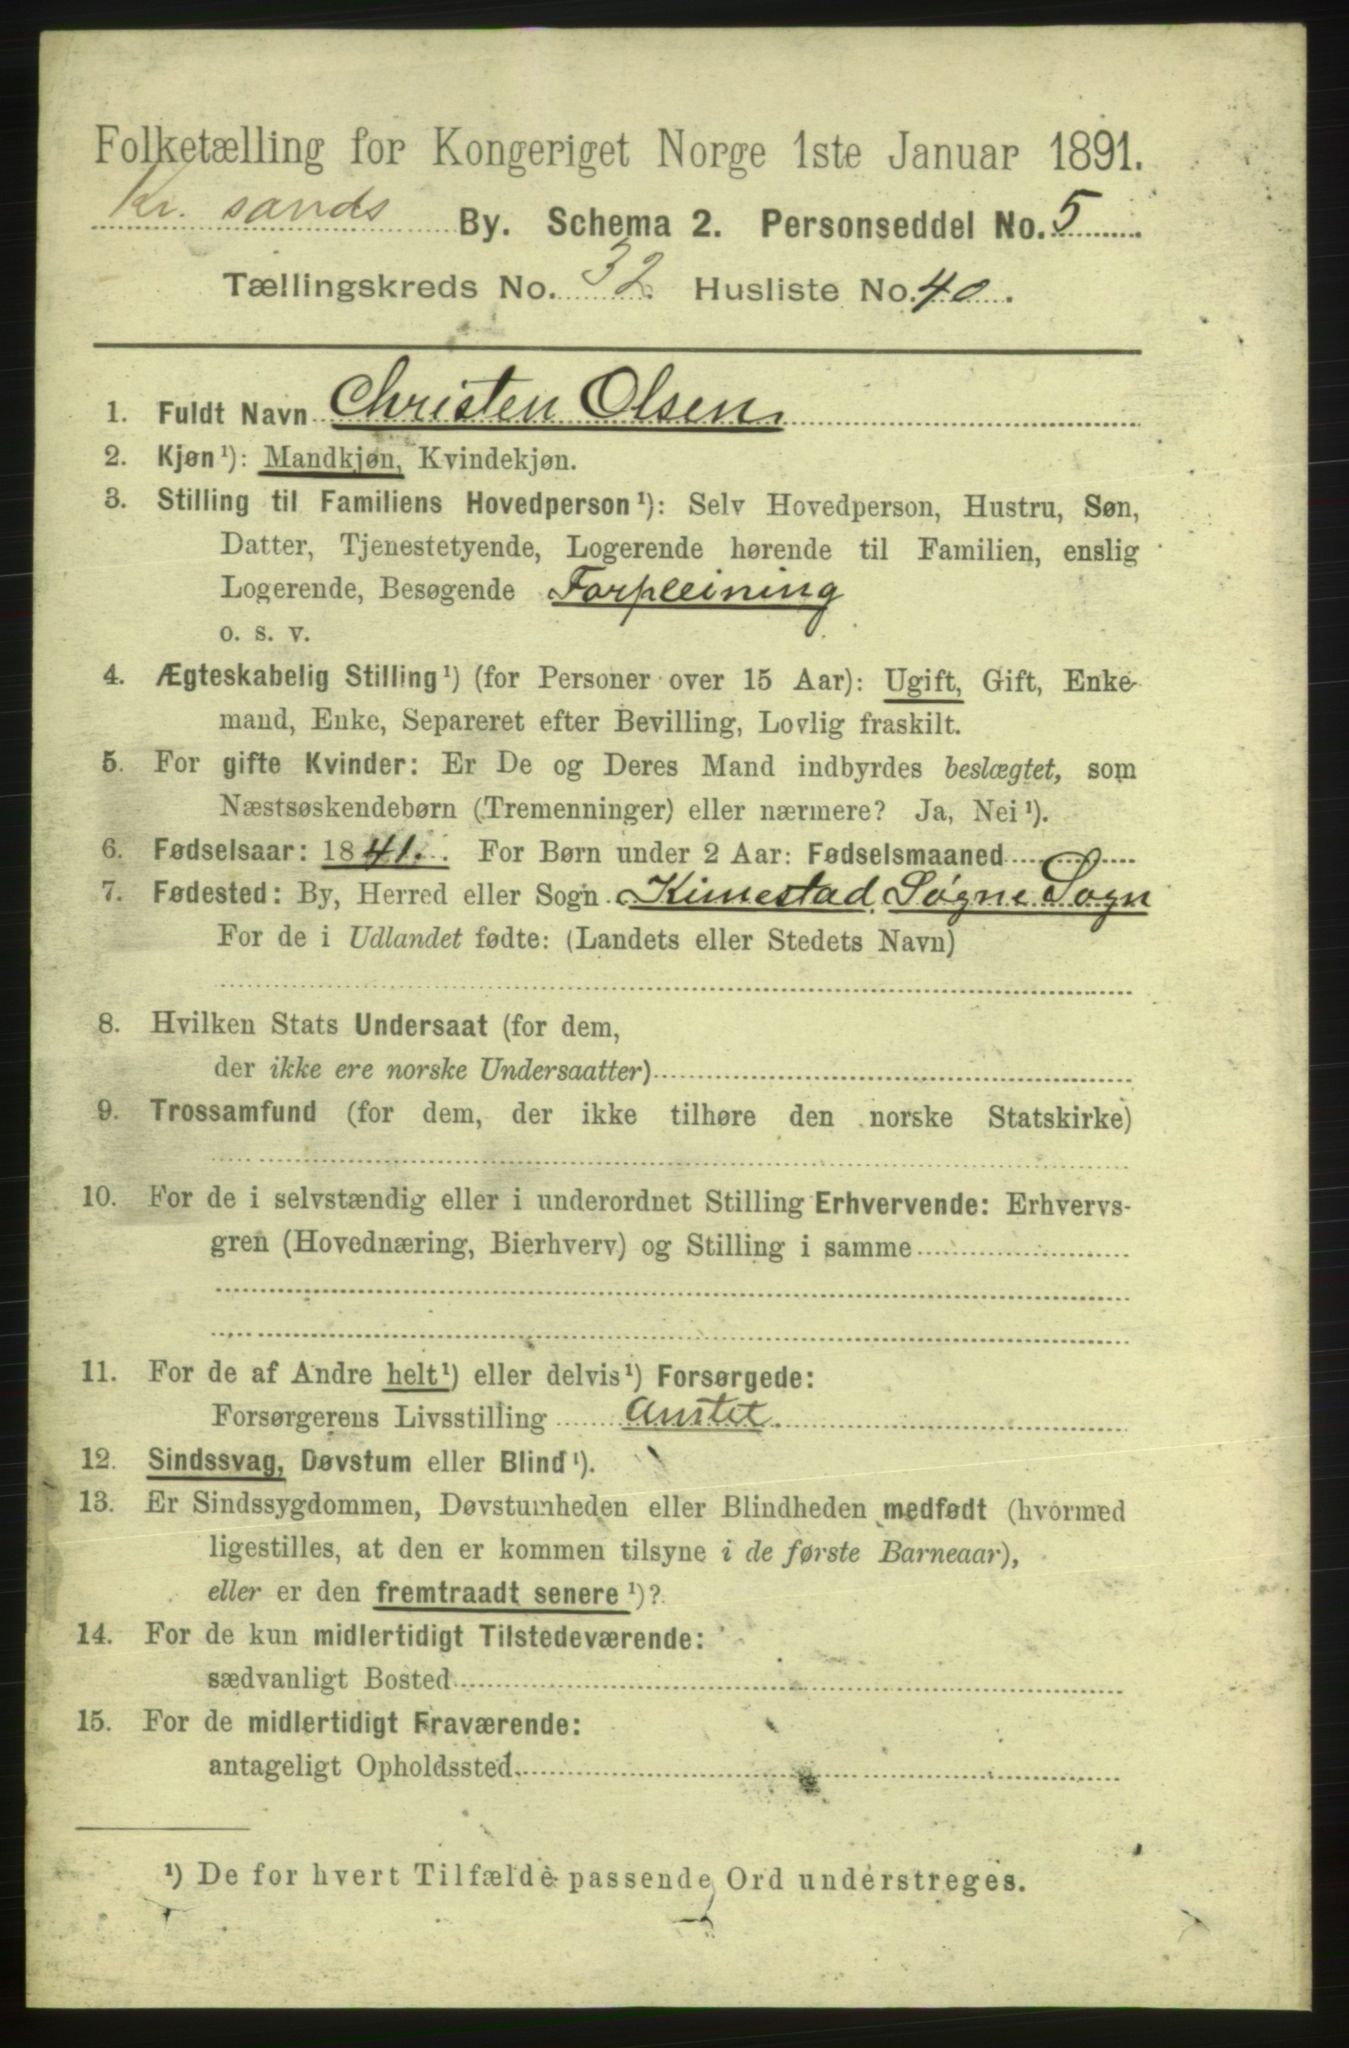 Folketælling for Kongeriget Norge 1ste Januar 1891.
Kr. sands By. Schema 2. Personseddel No. 5
Tællingskreds No. 32. Husliste No. 40.
1. Fuldt Navn Christen Olsen
2. Kjøn¹): Mandkjøn, Kvindekjøn.
3. Stilling til Familiens Hovedperson¹): Selv Hovedperson, Hustru, Søn,
Datter, Tjenestetyende, Logerende hørende til Familien, enslig
Logerende, Besøgende Forpleining
o. s. v.
4. Ægteskabelig Stilling¹) (for Personer over 15 Aar): Ugift, Gift, Enke-
mand, Enke, Separeret efter Bevilling, Lovlig fraskilt.
5. For gifte Kvinder: Er De og Deres Mand indbyrdes beslægtet, som
Næstsøskendebørn (Tremenninger) eller nærmere? Ja, Nei¹).
6. Fødselsaar: 1841. For Børn under 2 Aar: Fødselsmaaned
7. Fødested: By, Herred eller Sogn Kimestad Søgne Sogn
For de i Udlandet fødte: (Landets eller Stedets Navn)
8. Hvilken Stats Undersaat (for dem,
der ikke ere norske Undersaatter)
9. Trossamfund (for dem, der ikke tilhøre den norske Statskirke)
10. For de i selvstændig eller i underordnet Stilling Erhvervende: Erhvervs-
gren (Hovednæring, Bierhverv) og Stilling i samme
11. For de af Andre helt¹) eller delvis¹) Forsørgede:
Forsørgerens Livsstilling Amtet.
12. Sindssvag, Døvstum eller Blind¹).
13. Er Sindssygdommen, Døvstumheden eller Blindheden medfødt (hvormed
ligestilles, at den er kommen tilsyne i de første Barneaar),
eller er den fremtraadt senere¹)?
14. For de kun midlertidigt Tilstedeværende:
sædvanligt Bosted
15. For de midlertidigt Fraværende:
antageligt Opholdssted
¹) De for hvert Tilfælde passende Ord understreges.